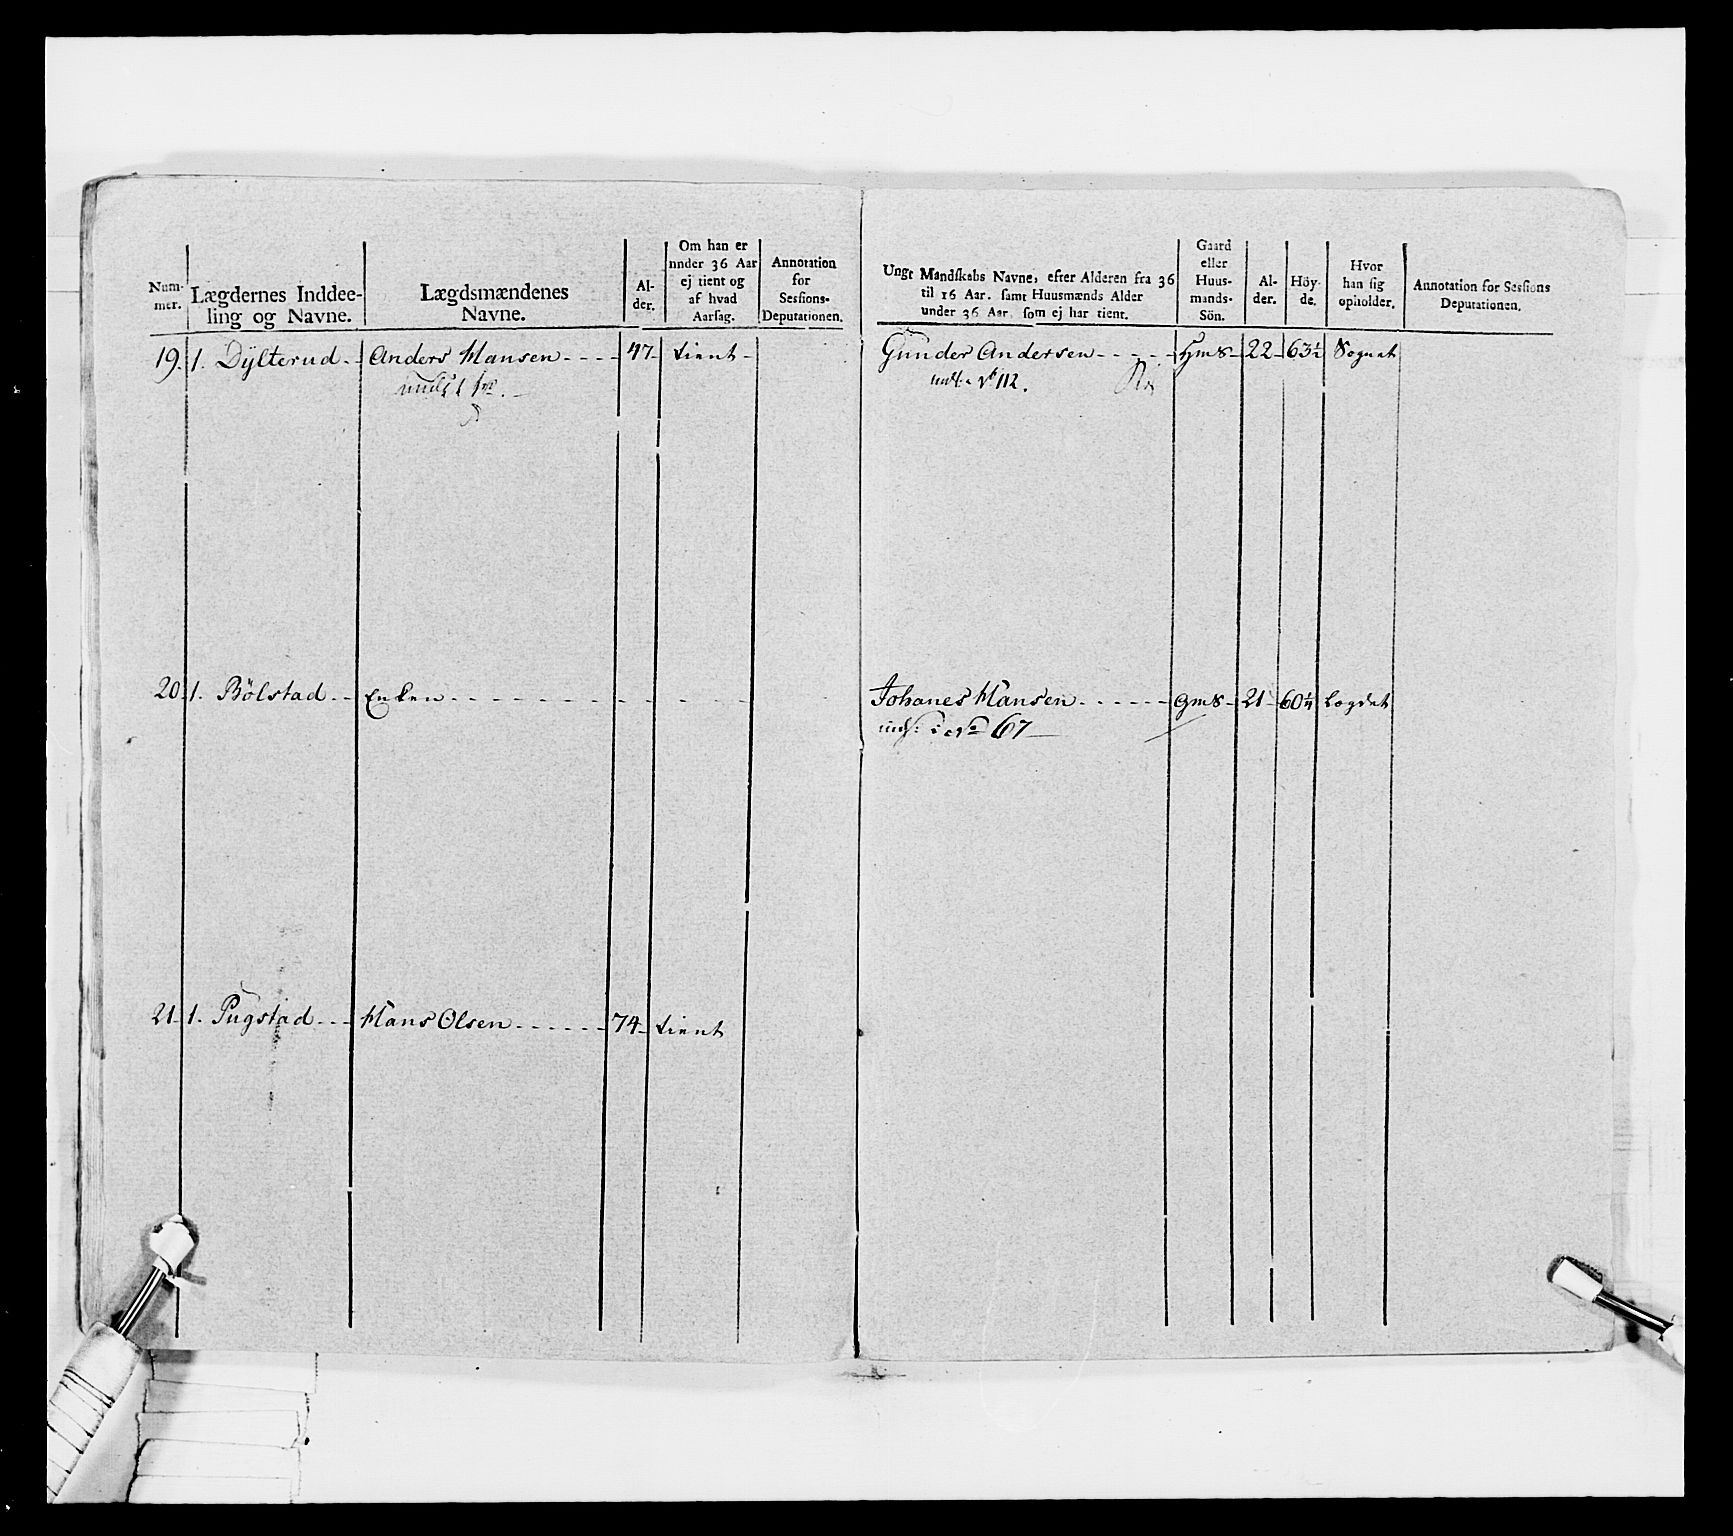 Nummer.
Lægdernes Inddeeling og Navne.
Lægdsmændenes Navne.
Alder.
Om han er
nnder 36 Aar
ej tient og
af hvad
Aarsag.
Annotation
for
Sessions-
Deputationen.
Ungt Mandskabs Navne, efter Alderen fra 36
til 16 Aar. samt Huusmænds Alder
under 36 Aar som ej har tient.
Gaard
eller
Huus-
mands-
Sön.
Al-
der.
Höy-
de.
Hvor
han sig
opholder.
Annotation for Sessions
Deputationen.
19. 1. Dÿlterud - Anders Hansen - - - - 47 tient - Gunder Andersen - - - - - Hms - 22 - 63½ Sognet
No 112.
20. 1. Bölstad - - Enken - - - - - - - - - - Johanes Hansen - - - - - - GmS - 21 - 60¼ Lægdet
No 67
21. 1. Pugstad - - - Hans Olsen - - - - - - 74 - tient